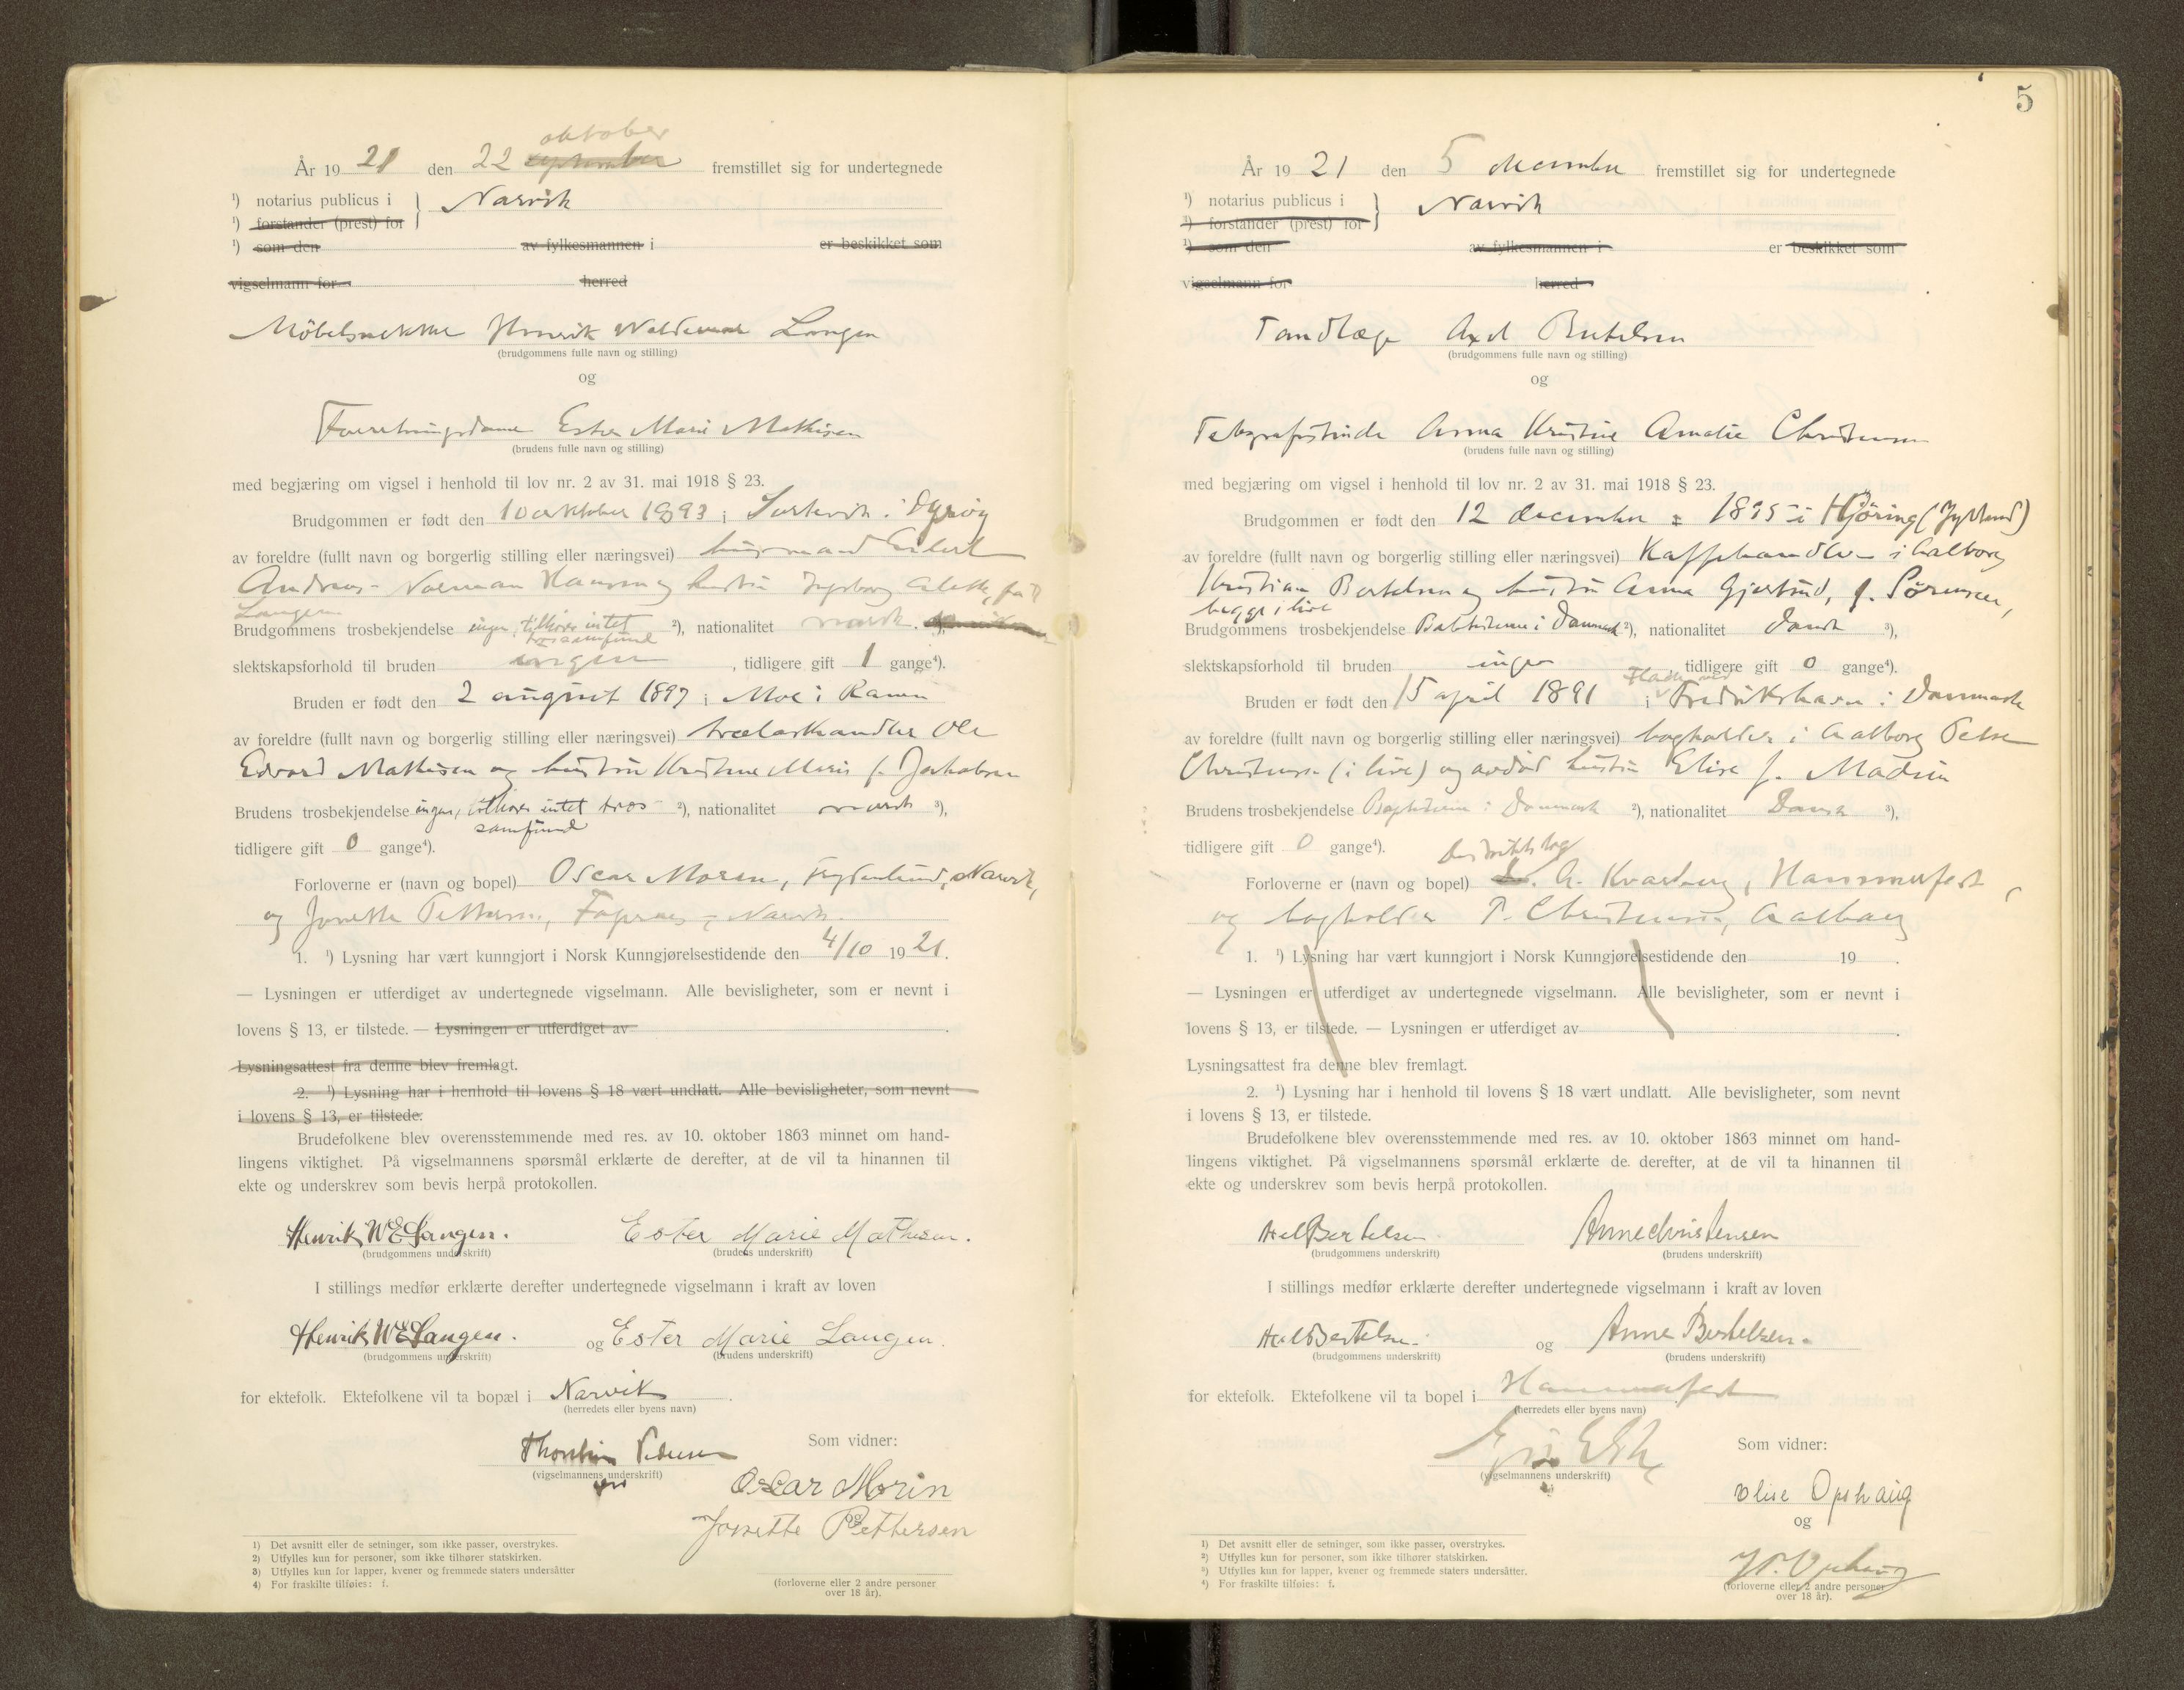 År 19 21 den 22 september oktober fremstillet sig for undertegnede
¹) notarius publicus i } Narvik
¹) forstander (prest) for
¹) som den av fylkesmannen i er beskikket som
vigselmann for herred
Möbelsnekker Henrik Waldemar Langen
(brudgommens fulle navn og stilling)
og
Forretningsdame Ester Marie Mathisen
(brudens fulle navn og stilling)
med begjæring om vigsel i henhold til lov nr. 2 av 31. mai 1918 § 23.
Brudgommen er født den 10 oktober 1893 i i Dyrøy
av foreldre (fullt navn og borgerlig stilling eller næringsvei) husmand Eilert
Andreas Norman Hansen og hustru Ingeborg Alette, født
Langen
Brudgommens trosbekjendelse ingen, tilhører intet trossamfund ²), nationalitet norsk ³),
slektskapsforhold til bruden ingen, tidligere gift 1 gange⁴).
Bruden er født den 2 august 1897 i Moe i Ranen
av foreldre (fullt navn og borgerlig stilling eller næringsvei) trælasthandler Ole
Edvard Mathisen og hustru Kristine Marie f. Jakobsen
Brudens trosbekjendelse ingen, tilhører intet tros- ²), nationalitet norsk ³),
samfund
tidligere gift 0 gange⁴).
Forloverne er (navn og bopel) Oscar Moren, Frydenlund, Narvik,
og Jonette Pettersen, Fagernes, Narvik.
1. ¹) Lysning har vært kunngjort i Norsk Kunngjørelsestidende den 4/10 1921.
— Lysningen er utferdiget av undertegnede vigselmann. Alle bevisligheter, som er nevnt i
lovens § 13, er tilstede. — Lysningen er utferdiget av .
Lysningsattest fra denne blev fremlagt.
2. ¹) Lysning har i henhold til lovens § 18 vært undlatt. Alle bevisligheter, som nevnt
i lovens § 13, er tilstede.
Brudefolkene blev overensstemmende med res. av 10. oktober 1863 minnet om hand-
lingens viktighet. På vigselmannens spørsmål erklærte de derefter, at de vil ta hinannen til
ekte og underskrev som bevis herpå protokollen.
Henrik W E Langen. Ester Marie Mathisen.
(brudgommens underskrift) (brudens underskrift)
I stillings medfør erklærte derefter undertegnede vigselmann i kraft av loven
Henrik W E Langen. og Ester Marie Langen.
(brudgommens underskrift) (brudens underskrift)
for ektefolk. Ektefolkene vil ta bopæl i Narvik .
(herredets eller byens navn)
Som vidner:
Thorstein Pedersen
(vigselmannens underskrift)
Oscar Morin
og
Jonette Pettersen
(forloverne eller 2 andre personer
over 18 år).
1) Det avsnitt eller de setninger, som ikke passer, overstrykes.
2) Utfylles kun for personer, som ikke tilhører statskirken.
3) Utfylles kun for lapper, kvener og fremmede staters undersåtter
4) For fraskilte tilføies: f.
5
År 19 21 den 5 december fremstillet sig for undertegnede
¹) notarius publicus i } Narvik
¹) forstander (prest) for
¹) som den av fylkesmannen i er beskikket som
vigselmann for herred
Tandlæge Axel Bertelsen
(brudgommens fulle navn og stilling)
og
Telegrafistinde Anna Kristine Amalie Christensen
(brudens fulle navn og stilling)
med begjæring om vigsel i henhold til lov nr. 2 av 31. mai 1918 § 23.
Brudgommen er født den 12 december 1895 i Hjöring (Jylland)
av foreldre (fullt navn og borgerlig stilling eller næringsvei) Kaffehandler i Aalborg
Kristian Bertelsen og hustru Anna Gjertrud, f. Sörensen,
begge i live
Brudgommens trosbekjendelse Babtisterne i Danmark ²), nationalitet Dansk ³),
slektskapsforhold til bruden ingen, tidligere gift 0 gange⁴).
Bruden er født den 15 april 1891 i Fredrikshavn i Danmark
av foreldre (fullt navn og borgerlig stilling eller næringsvei) bogholder i Aalborg Peter
Christensen (i live) og avdöd hustru Elise f. Madsen
Brudens trosbekjendelse Baptisterne i Danmark ²), nationalitet Dansk ³),
tidligere gift 0 gange⁴).
Forloverne er (navn og bopel) A. Kvarberg, Hammerfest
og bogholder P. Christensen, Aalborg
1. ¹) Lysning har vært kunngjort i Norsk Kunngjørelsestidende den 19 .
— Lysningen er utferdiget av undertegnede vigselmann. Alle bevisligheter, som er nevnt i
lovens § 13, er tilstede. — Lysningen er utferdiget av .
Lysningsattest fra denne blev fremlagt.
2. ¹) Lysning har i henhold til lovens § 18 vært undlatt. Alle bevisligheter, som nevnt
i lovens § 13, er tilstede.
Brudefolkene blev overensstemmende med res. av 10. oktober 1863 minnet om hand-
lingens viktighet. På vigselmannens spørsmål erklærte de derefter, at de vil ta hinannen til
ekte og underskrev som bevis herpå protokollen.
Axel Bertelsen Anne Christensen
(brudgommens underskrift) (brudens underskrift)
I stillings medfør erklærte derefter undertegnede vigselmann i kraft av loven
Axel Bertelsen og Anne Bertelsen
(brudgommens underskrift) (brudens underskrift)
for ektefolk. Ektefolkene vil ta bopel i Hammerfest .
(herredets eller byens navn)
Som vidner:
(vigselmannens underskrift)
Olise Opshaug
og
Opshaug
(forloverne eller 2 andre personer
over 18 år).
1) Det avsnitt eller de setninger, som ikke passer, overstrykes.
2) Utfylles kun for personer, som ikke tilhører statskirken.
3) Utfylles kun for lapper, kvener og fremmede staters undersåtter.
4) For fraskilte tilføies: f.